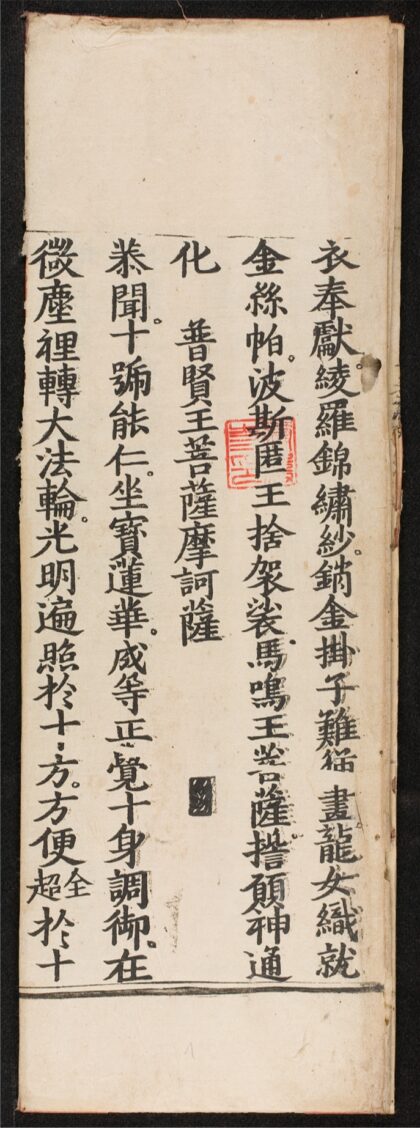 衣奉獻。綾羅錦繡紗。銷金掛子難描畫。龍女織就
金絲帕。波斯匿王捨袈裟。馬鳴王菩薩。誓願神通
化　普賢王菩薩摩訶薩
恭聞。十號能仁。坐寳蓮華。成等正覺十身調御。在
微塵裡轉大法輪。光明遍照於十方。方便全超於十